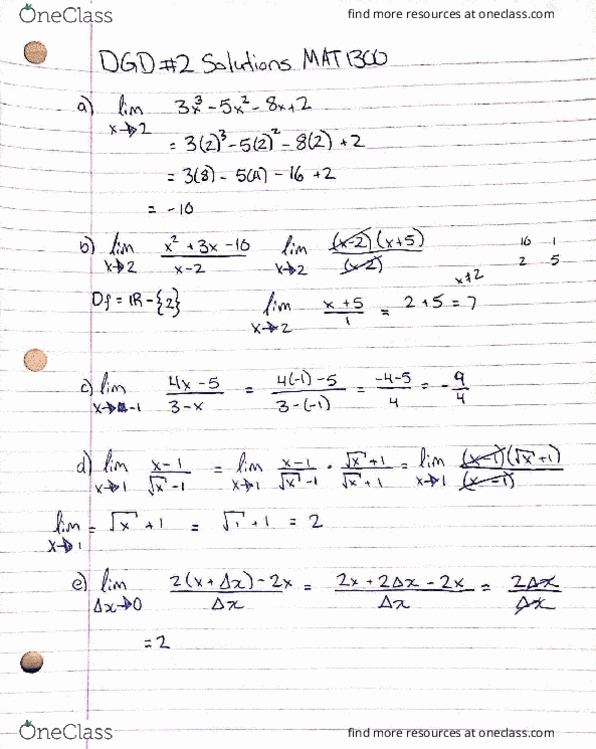 OneClass
find more resources at oneclass.com
DGD #2 Solutions MAT1300
a) lim x→2 3x³ - 5x² - 8x + 2
= 3(2)³ - 5(2)² - 8(2) + 2
= 3(8) - 5(4) - 16 + 2
= -10
b) lim x→2 (x² + 3x - 10)/(x-2) lim x→2 (x-2)(x+5)/(x-2) 10 1
2 5
x≠2
Df = IR - {2} lim x→2 (x+5)/1 = 2+5 = 7
c) lim x→-1 (4x-5)/(3-x) = (4(-1)-5)/(3-(-1)) = (-4-5)/4 = -9/4
d) lim x→1 (x-1)/(√x-1) = lim x→1 (x-1)/(√x-1) · (√x+1)/(√x+1) = lim x→1 (x-1)(√x+1)/(x-1)
lim x→1 = √x + 1 = √1 + 1 = 2
e) lim Δx→0 (2(x+Δx)-2x)/Δx = (2x+2Δx-2x)/Δx = 2Δx/Δx
= 2
OneClass
find more resources at oneclass.com